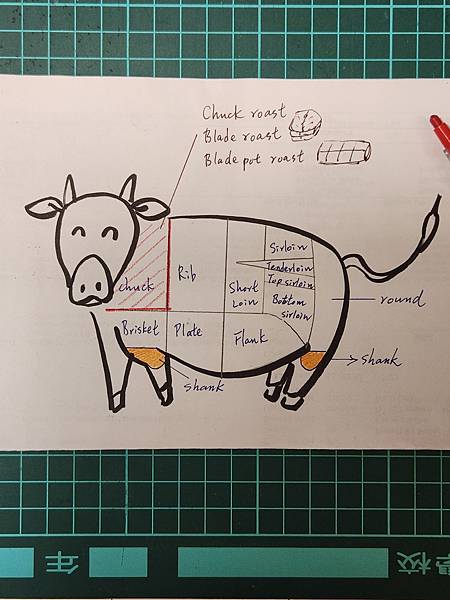 Chuck roast
Blade roast
Blade pot roast
chuck
Rib
Short
Loin
Sirloin
Tenderloin
Top sirloin
Bottom
sirloin
round
Brisket
Plate
Flank
shank
shank
年
學校